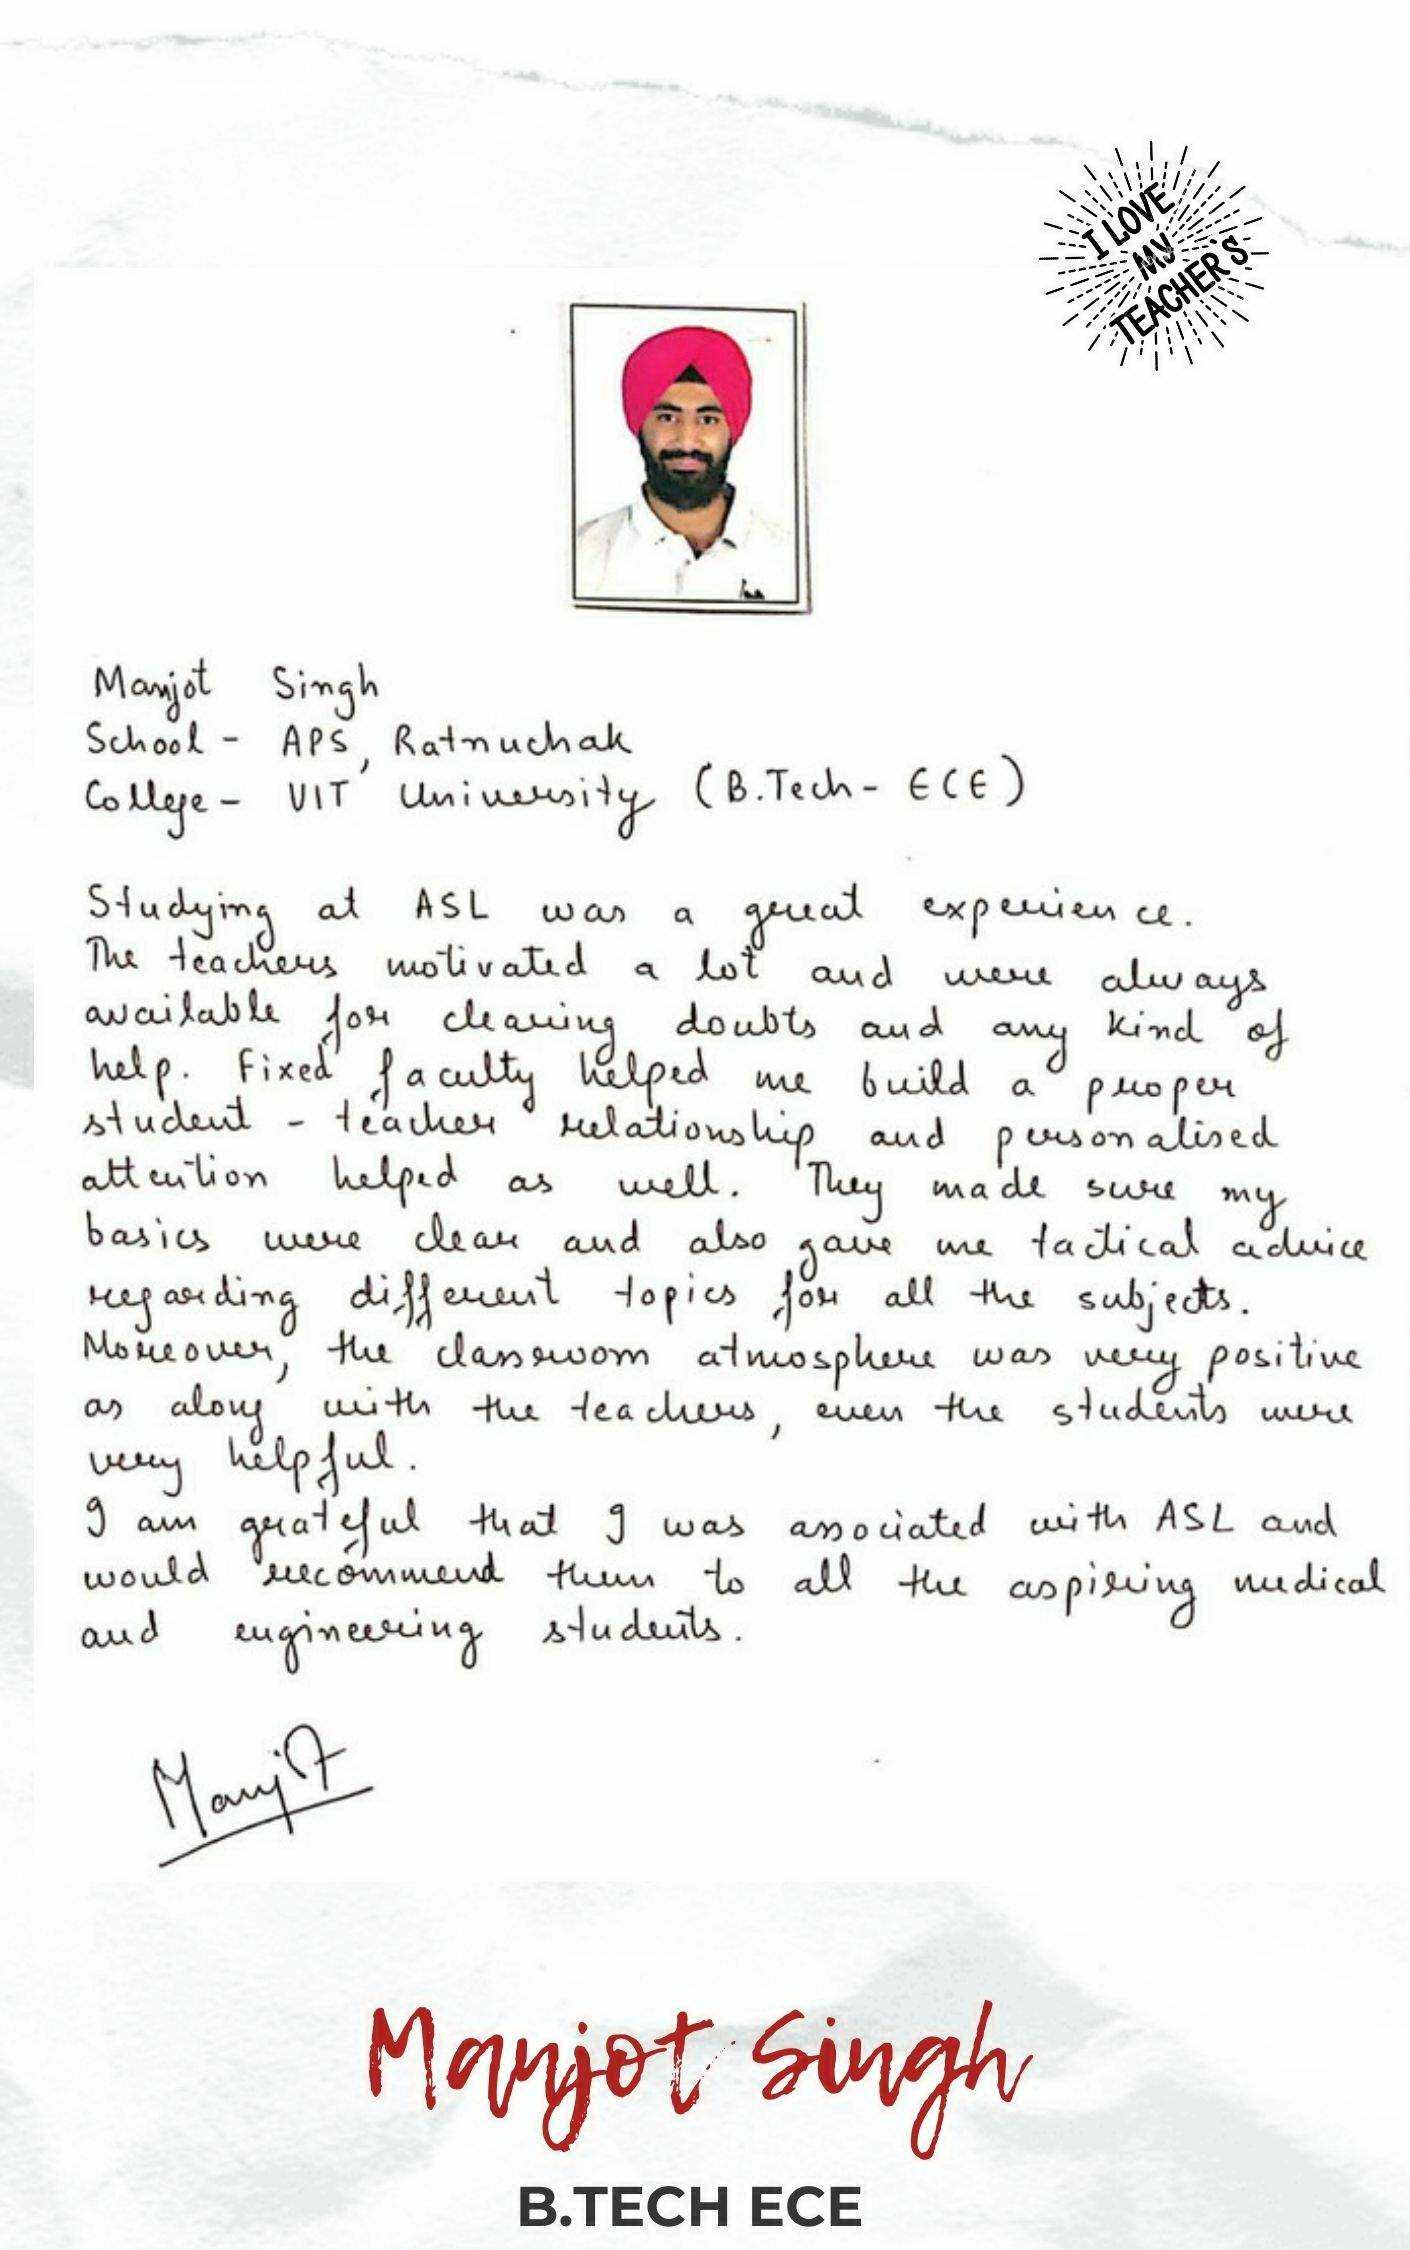 I LOVE
MY
TEACHER'S
Manjot Singh
School - APS, Ratnuchak
College - VIT University (B.Tech - ECE)
Studying at ASL was a great experience.
The teachers motivated a lot and were always
available for clearing doubts and any kind of
help. Fixed faculty helped me build a proper
student - teacher relationship and personalised
attention helped as well. They made sure my
basics were clear and also gave me tactical advice
regarding different topics for all the subjects.
Moreover, the classroom atmosphere was very positive
as along with the teachers, even the students were
very helpful.
I am grateful that I was associated with ASL and
would recommend them to all the aspiring medical
and engineering students.
Manjot
Manjot Singh
B.TECH ECE